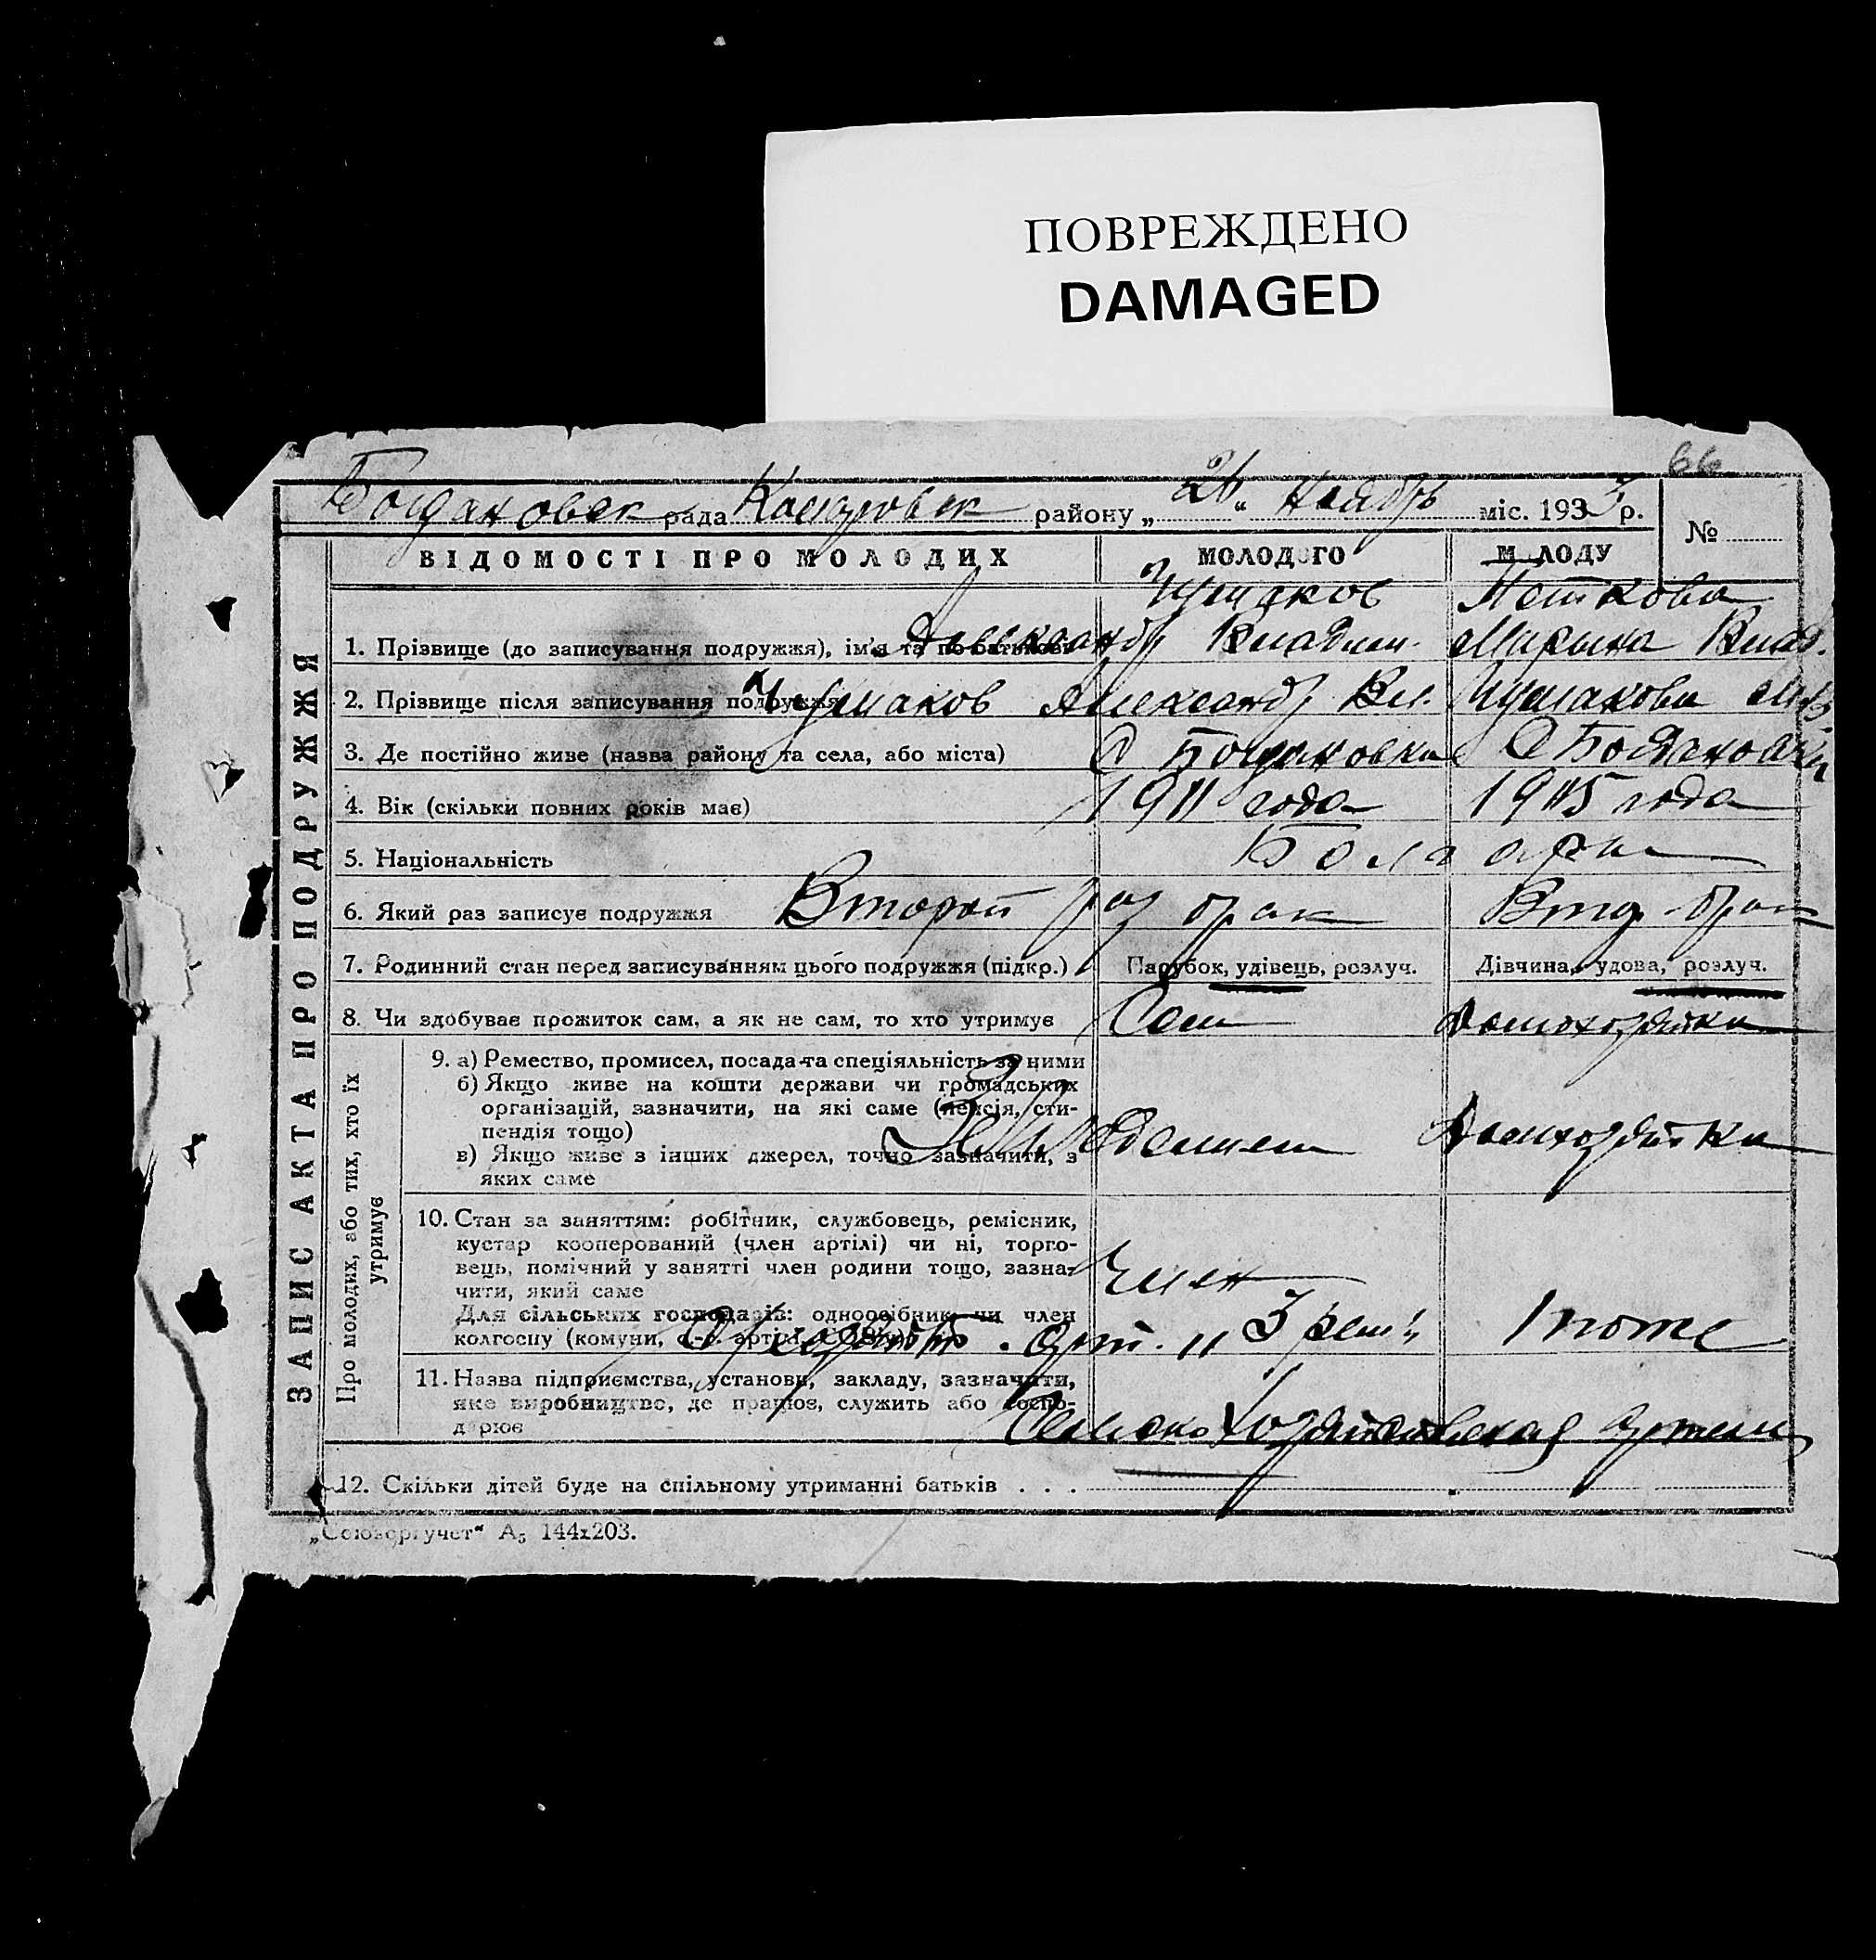 ПОВРЕЖДЕНО
DAMAGED
66
Богдановск рада района „26“ Ноябрь міс. 1933 р.
№
ВІДОМОСТІ ПРО МОЛОДИХ
МОЛОДОГО
МОЛОДУ
ЗАПИС АКТА ПРО ПОДРУЖЖЯ
Петкова
1. Прізвище (до записування подружжя), ім'я та по батькові Александр Владим. Марына Влад.
2. Прізвище після записування подружжя Александр Вл.
3. Де постійно живе (назва району та села, або міста) С Богдановка С Богдановка
4. Вік (скільки повних років має) 1911 года года
5. Національність Болгари
6. Який раз записує подружжя Второй раз брак Втор. брак
7. Родинний стан перед записуванням цього подружжя (підкр.) Парубок, удівець, розлуч. Дівчина, удова, розлуч.
8. Чи здобуває прожиток сам, а як не сам, то хто утримує Сам Домохозяйка
Про молодих, або тих, хто їх утримує
9. а) Ремество, промисел, посада та спеціяльність за ними
б) Якщо живе на кошти держави чи громадських
організацій, зазначити, на які саме (пенсія, сти-
пендія тощо)
Домохозяйка
в) Якщо живе з інших джерел, точно зазначити, з
яких саме
10. Стан за заняттям: робітник, службовець, ремісник,
кустар кооперований (член артілі) чи ні, торго-
вець, помічний у занятті член родини тощо, зазна-
чити, який саме
Член
Для сільських господарів: одноосібник чи член
колгоспу (комуни, с.-г. артілі, арт. тоже
11. Назва підприємства, установи, закладу, зазначити,
яке виробництво, де працює, служить або госпо-
дарює
Сельско Хозяйственная артель
12. Скільки дітей буде на спільному утриманні батьків . . .
„Союзоргучет“ А₅ 144х203.